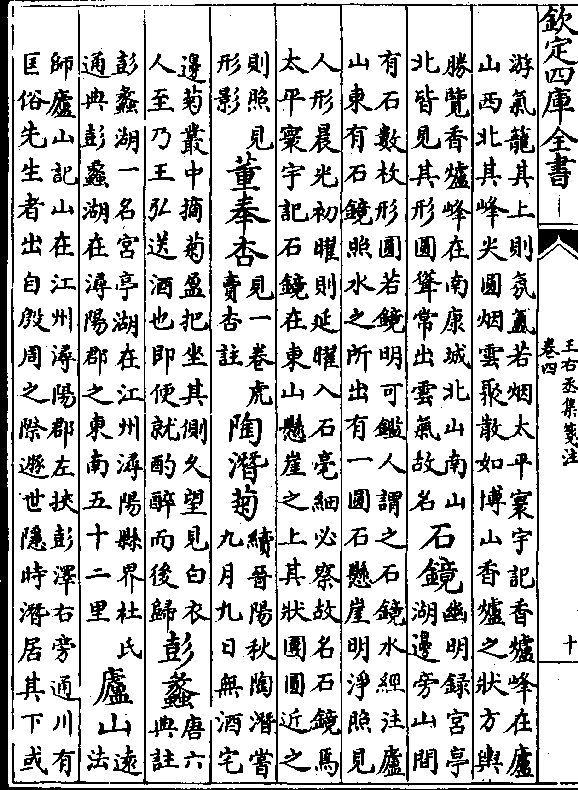 欽定四庫全書
王右丞集箋注
卷四
十
游氣籠其上則氛氲若烟太平寰宇記香爐峰在廬
山西北其峰尖圓烟雲聚散如博山香爐之狀方輿
勝覽香爐峰在南康城北山南山
北皆見其形圓聳常出雲氣故名
石鏡
幽明録宮亭
湖邊旁山間
有石數枚形圓若鏡明可鑑人謂之石鏡水經注廬
山東有石鏡照水之所出有一圓石懸崖明淨照見
人形晨光初曜則延曜入石毫細必察故名石鏡焉
太平寰宇記石鏡在東山懸崖之上其狀團圓近之
則照見
形影
董奉杏
見一卷虎
賣杏註
陶潛菊
續晉陽秋陶潛嘗
九月九日無酒宅
邊菊叢中摘菊盈把坐其側久望見白衣
人至乃王弘送酒也即便就酌醉而後歸
彭蠡
唐六
典註
彭蠡湖一名宮亭湖在江州潯陽縣界杜氏
通典彭蠡湖在潯陽郡之東南五十二里
廬山
遠
法
師廬山記山在江州潯陽郡左挾彭澤右旁通川有
匡俗先生者出自殷周之際遯世隱時潛居其下或